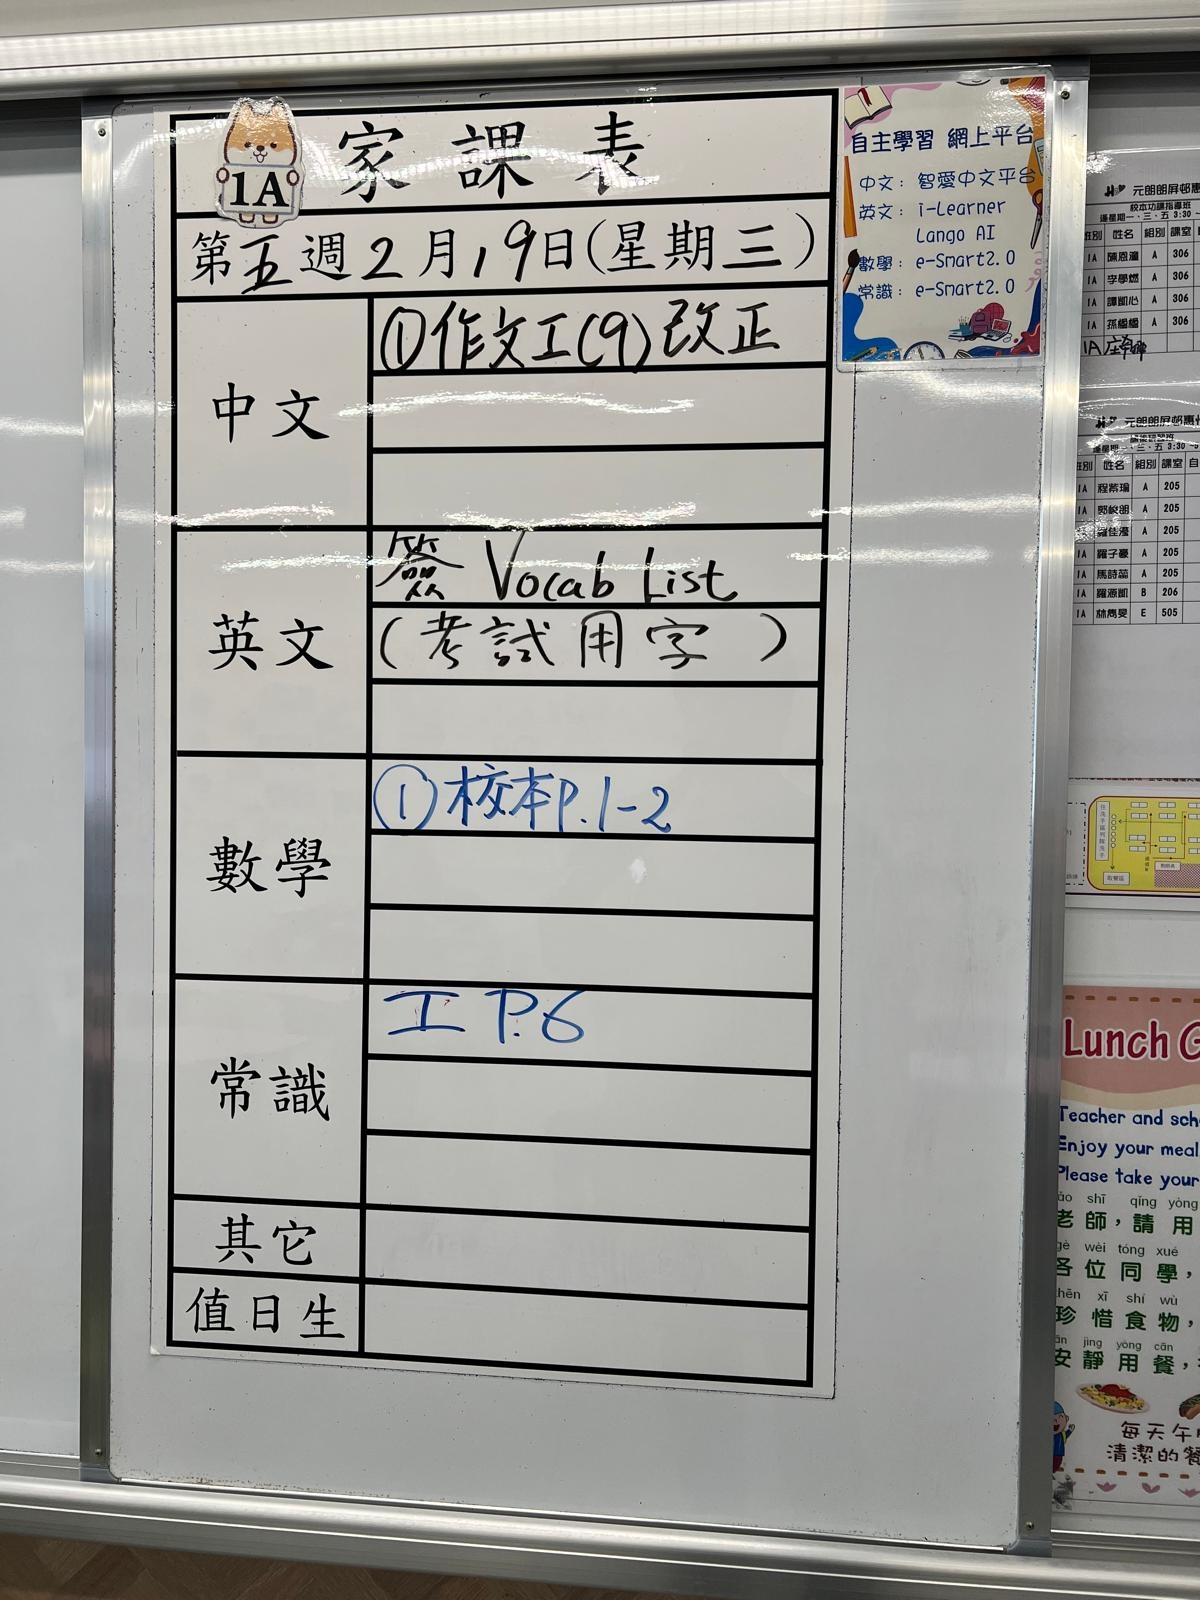 1A
家課表
第五週2月19日(星期三)
中文
①作文工(9)改正
英文
簽 Vocab List
(考試用字 )
數學
①校本P.1-2
常識
工 P.6
其它
值日生
自主學習 網上平台
中文: 智愛中文平台
英文: i-Learner
Lango AI
數學: e-Smart2.0
常識: e-Smart2.0
元朗朗屏邨惠
校本功課指導班
逢星期一、三、五 3:30
班別 姓名 組別 課室
1A 陳恩 A 306
1A 李學燃 A 306
1A 譚凱心 A 306
1A A 306
1A
元朗朗屏邨惠
逢星期一、三、五 3:30
班別 姓名 組別 課室 自
1A 程紫瑜 A 205
1A 郭峻朗 A 205
1A 羅佳瀅 A 205
1A 羅子豪 A 205
1A 馬詩蕊 A 205
1A 羅源凱 B 206
1A 林雋旻 E 505
取餐區
Lunch G
Teacher and sch
Enjoy your meal
Please take your
ǎo shī qíng yòng
老師，請用
gè wèi tóng xué
各位同學，
zhēn xī shí wù
珍惜食物，
ān jìng yòng cān
安靜用餐，
每天午
清潔的餐